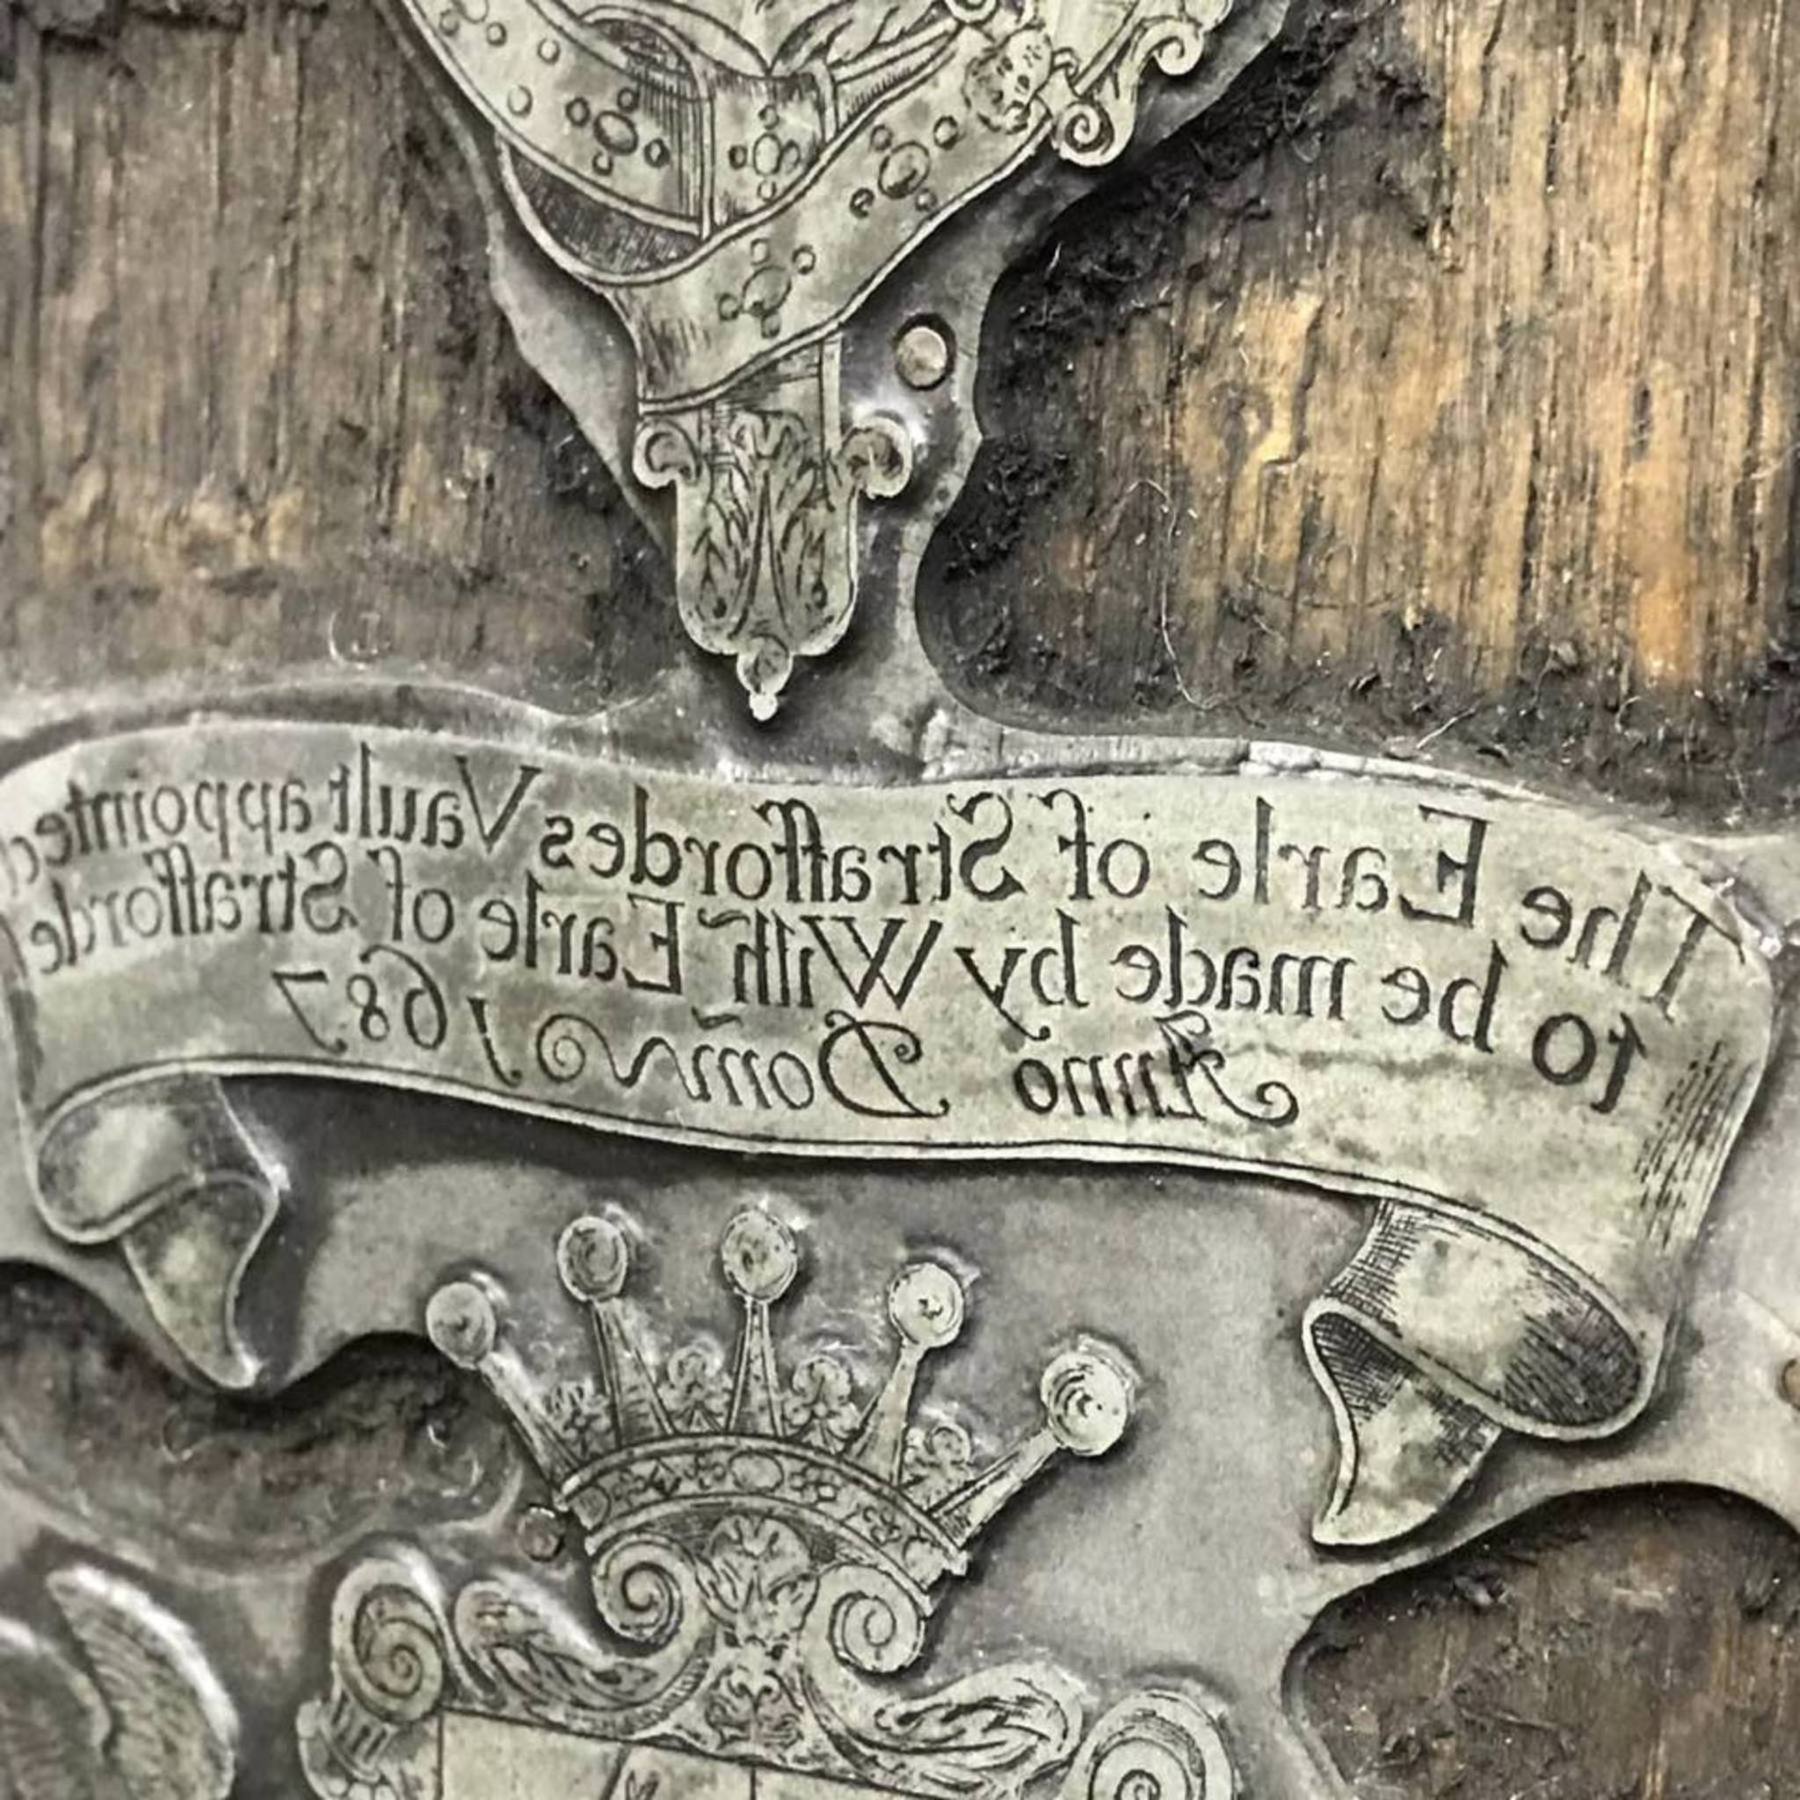 The Earle of Straffordes Vault appointed
to be made by Will͂ Earle of Strafforde
Anno Dom̃ 1687